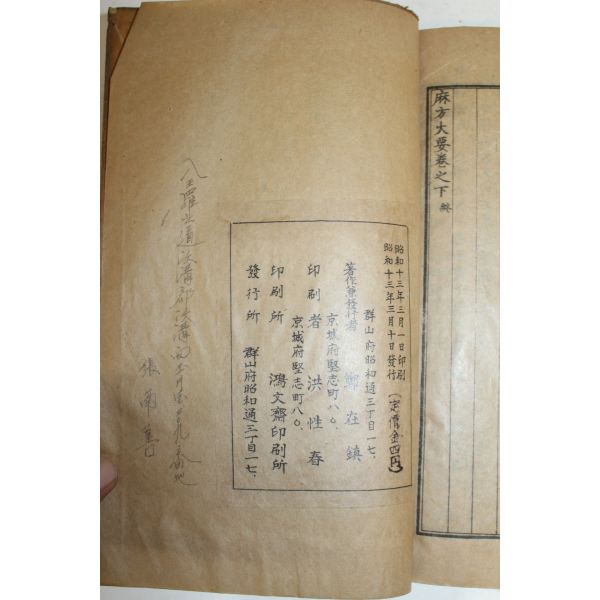 麻方大要卷之下 終
昭和十三年三月一日印刷
昭和十三年三月十日發行
(定價金四円)
群山府昭和通三丁目一七、
著作兼發行者 鄭在鎮
京城府堅志町八〇、
印刷者 洪性春
京城府堅志町八〇、
印刷所 鴻文齋印刷所
發行所 群山府昭和通三丁目一七、